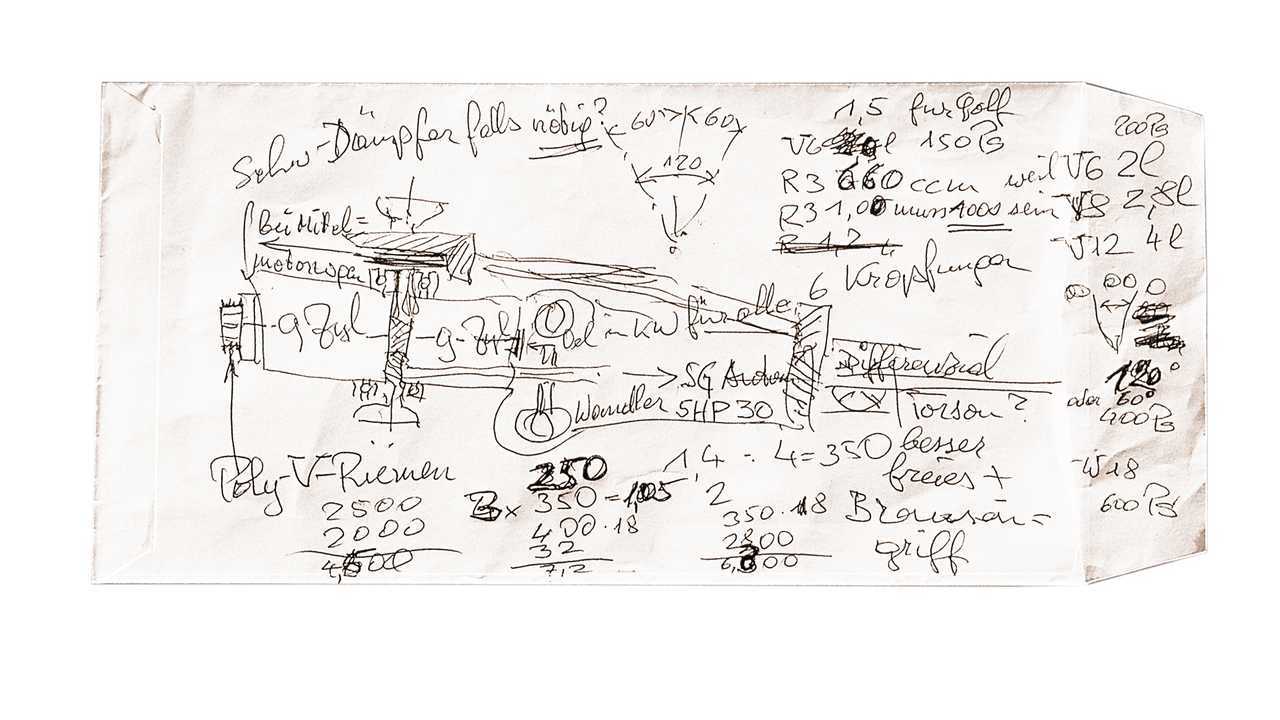 Schw-Dämpfer falls nötig?
60° 60
120
1,5 für Golf
V6 l 150 PS
R3 660 ccm weil V6 2l
R3 1,00 muss 1000 sein V8 2,8l
R 1,2
V12 4l
200 PS
6 Kröpfungen
Bei Mittel=
motorwagen
9 Zyl
9 Zyl
Oel in KW für alle
SG
Wandler 5HP30
Differenzial
Torson?
besser
freies +
Bremsen=
griff
120°
oder 60°
400 PS
W18
600 PS
Poly-V-Riemen
2500
2000
4,500
250
3x 350 = 1,05
400 . 18
32
7,2
1,4 : 4 = 350
2
350 . 18
2800
6,300